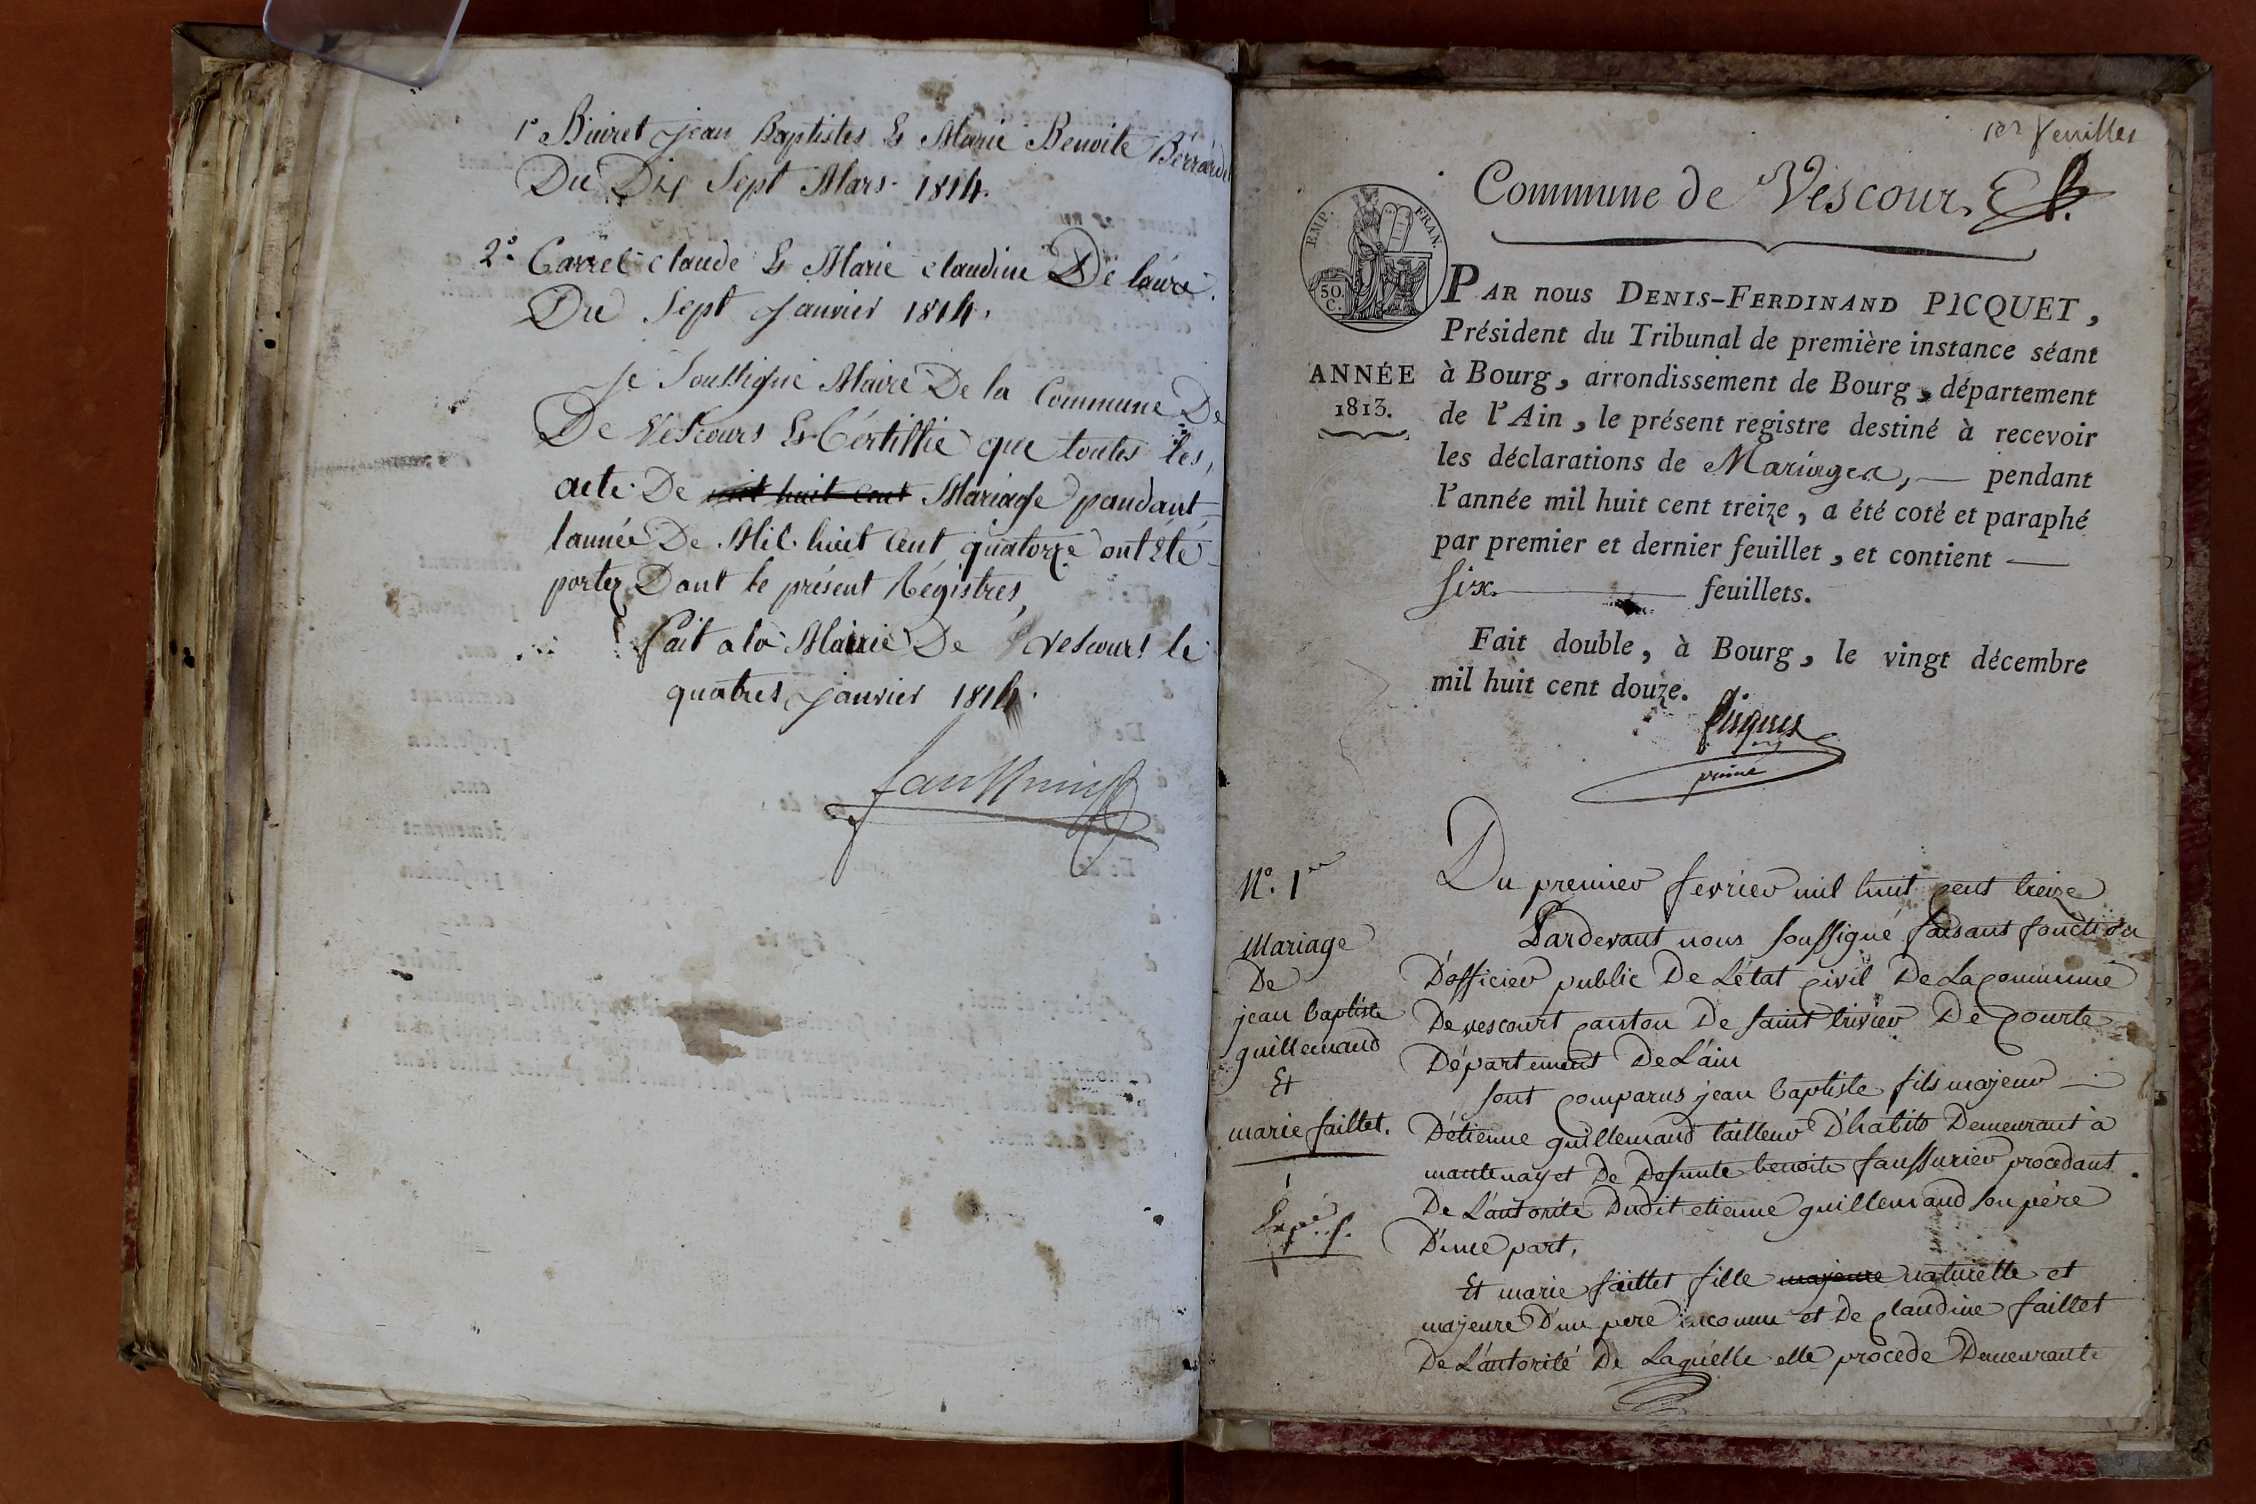 1º Buiret jean Baptistes Et Marie Benoite Berrardet
Du Dix Sept Mars 1814.
2º Carrel claude Et Marie claudine De laure.
Du Sept Janvier 1814.
Je Soussigné Maire De la Commune De
De Vescours Et Certiffie que toutes les,
acte De mil huit Cent Mariage pandant
lannée De Mil huit Cent quatorze ont Eté
portez Dant le présent Régistres,
fait a la Mairie De Vescours le
quatres janvier 1814.
1er feuillet
Commune de Vescour,
EMP. FRAN.
50. C.
ANNÉE
1813.
PAR nous DENIS-FERDINAND PICQUET,
Président du Tribunal de première instance séant
à Bourg, arrondissement de Bourg, département
de l'Ain, le présent registre destiné à recevoir
les déclarations de Mariages, — pendant
l'année mil huit cent treize, a été coté et paraphé
par premier et dernier feuillet, et contient —
Six. — feuillets.
Fait double, à Bourg, le vingt décembre
mil huit cent douze.
Picquet
Nº. 1er
Mariage
De
jean baptiste
guillemaud
Et
marie faillet.
Du premier fevrier mil huit cent treize
Pardevant nous soussigné faisant fonction
D'officier public De L'état civil De La commune
De vescourt canton De saint trivier De courte
Département De L'ain
sont comparus jean baptiste fils majeur
D'étienne guillemaud tailleur D'habits Demeurant à
mantenay et De Defunte benoite faussurier procedant
De L'autorité Dudit etienne guillemaud son père
D'une part,
Et marie faillet fille majeure naturelle et
majeure D'un pere inconnu et De claudine faillet
De L'autorité De Laquelle elle procede Demeurante